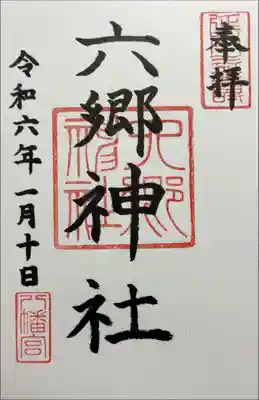 奉拝
六郷神社
令和六年一月十日
六郷神社
八幡宮